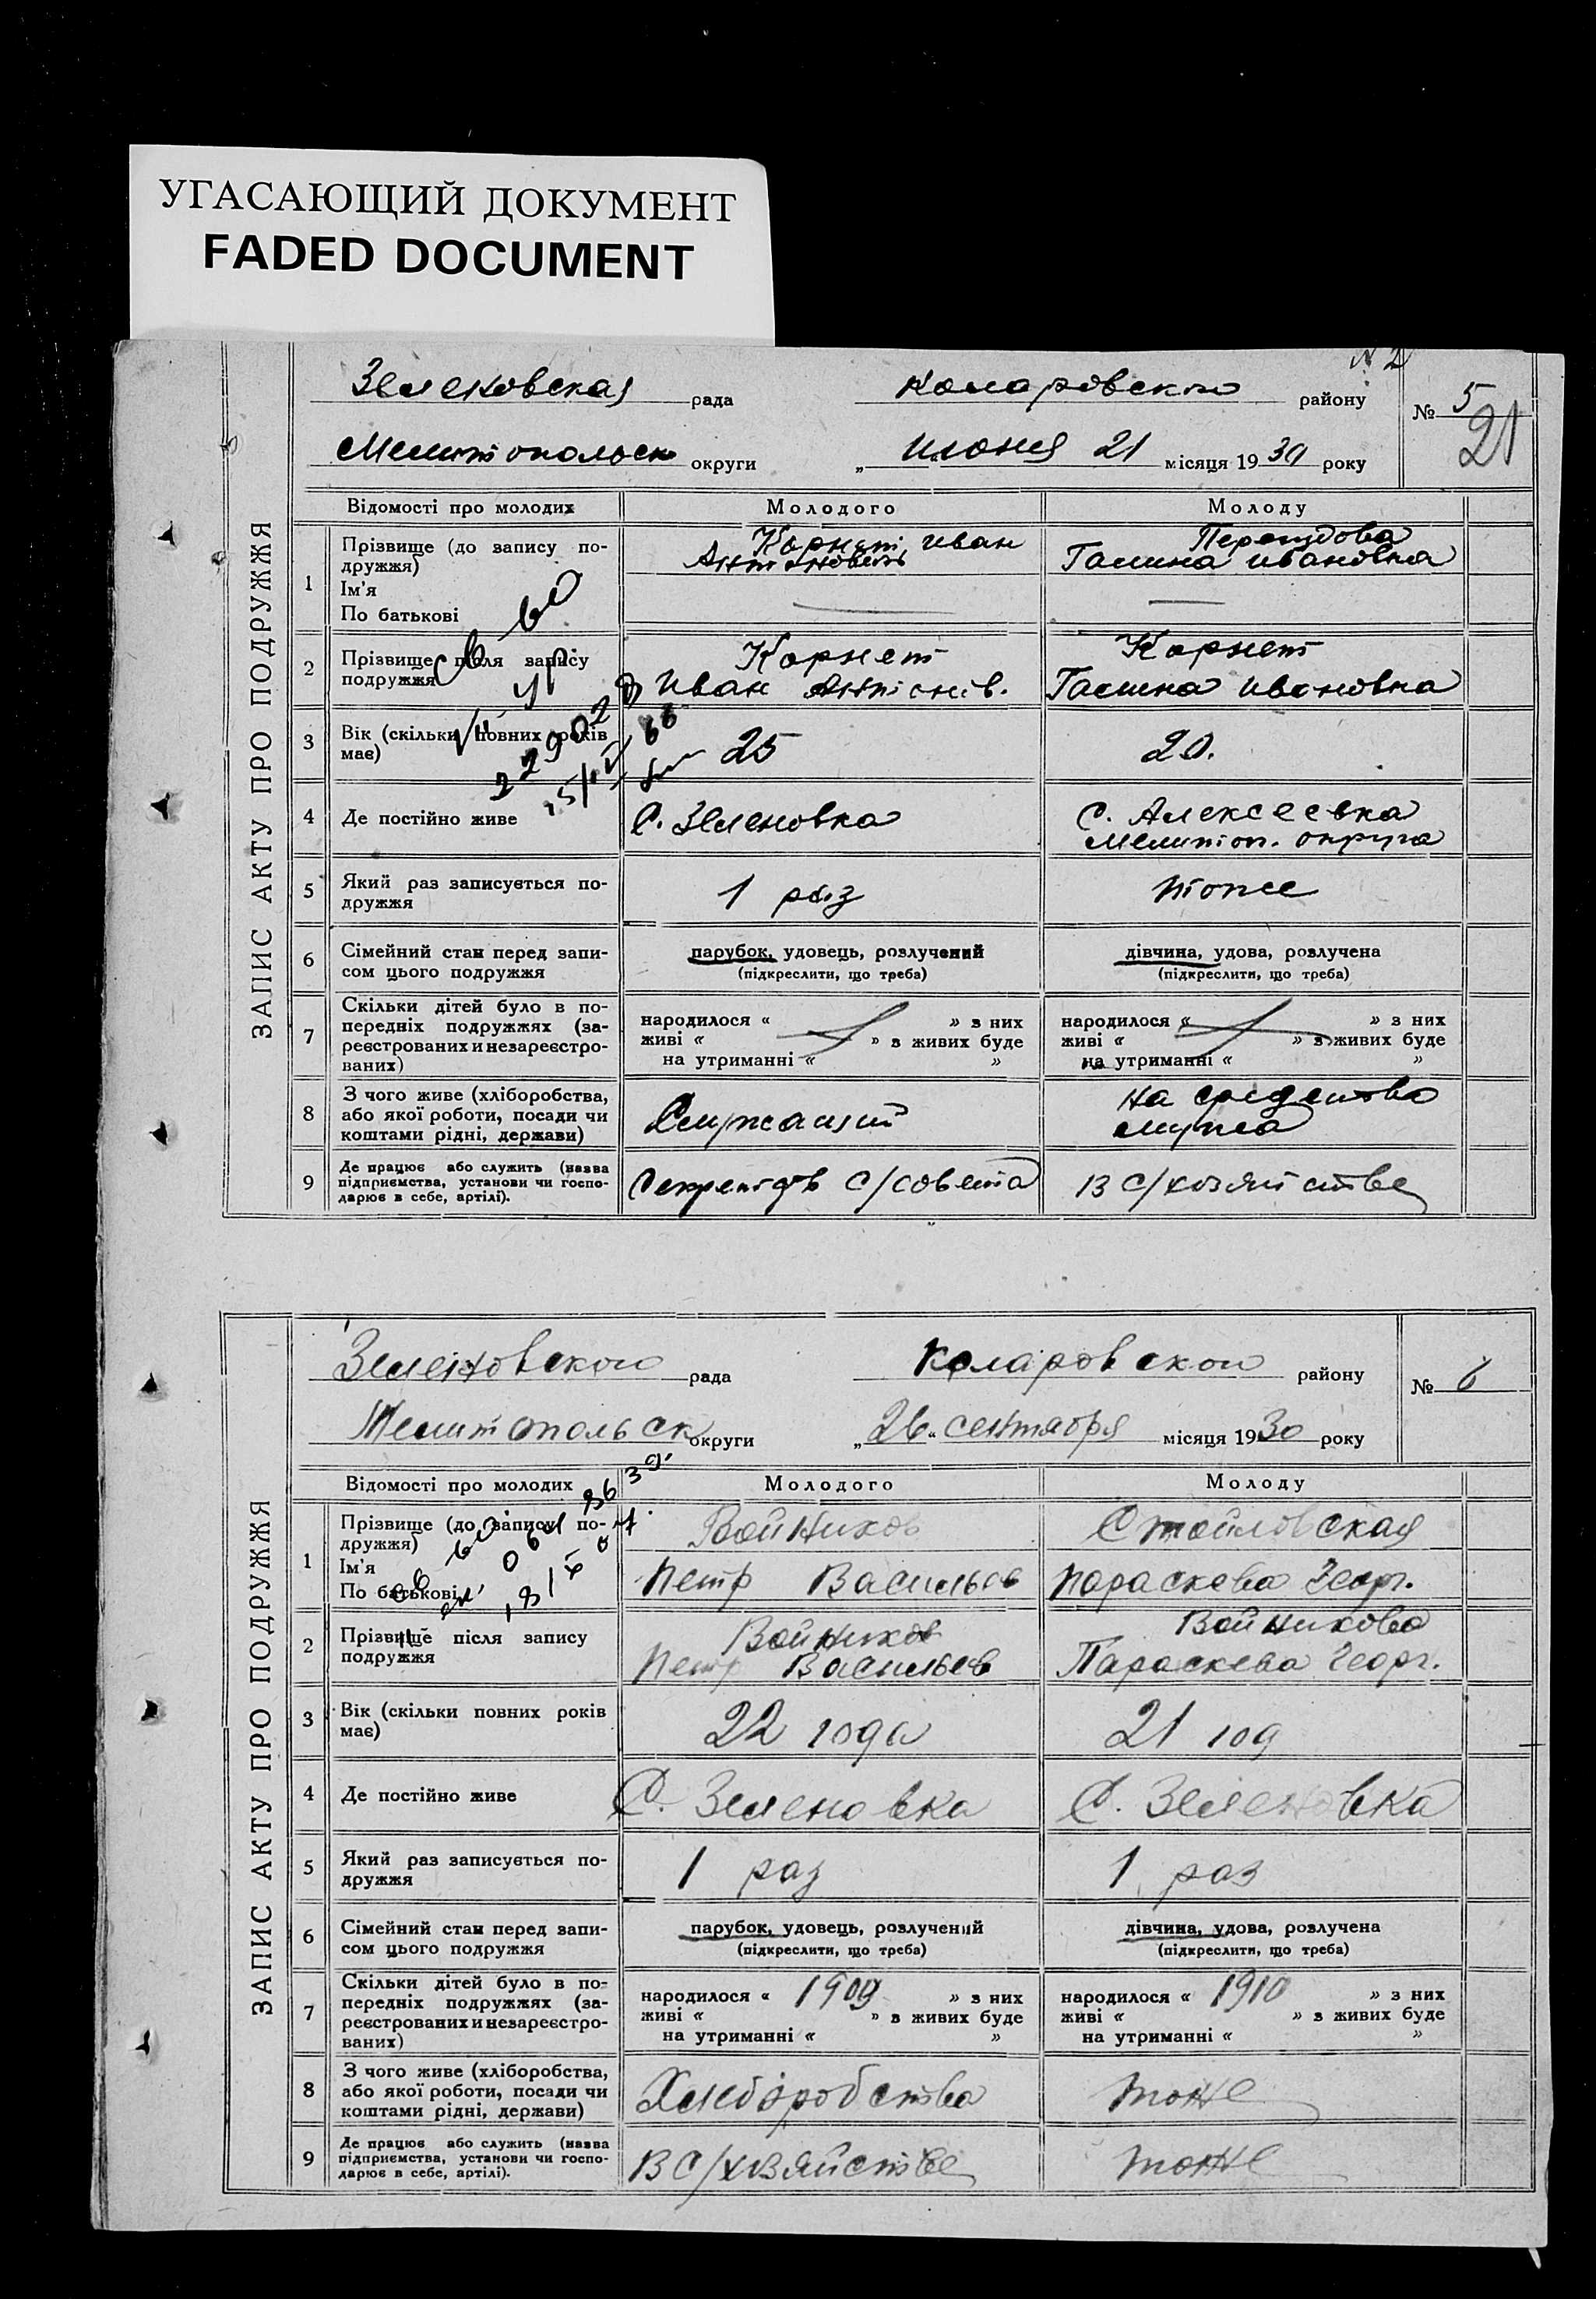 УГАСАЮЩИЙ ДОКУМЕНТ
FADED DOCUMENT
ЗАПИС АКТУ ПРО ПОДРУЖЖЯ
Зеленовская рада Коларовского району
№ 5
21
Мелитопольск округи „ июня 21 місяця 1930 року
Відомості про молодих Молодого Молоду
1 Прізвище (до запису по-
дружжя)
Ім'я
По батькові
Корнет Иван
Антонович
Галина Ивановна
2 Прізвище після запису
подружжя
Корнет
Иван Антонів.
Корнет
Галина Ивановна
3 Вік (скільки повних років
має)
25
20.
4 Де постійно живе
С. Зеленовка
С. Алексеевка
Мелитоп. округа
5 Який раз записується по-
дружжя
1 раз
тоже
6 Сімейний стан перед запи-
сом цього подружжя
парубок, удовець, розлучений
(підкреслити, що треба)
дівчина, удова, розлучена
(підкреслити, що треба)
7 Скільки дітей було в по-
передніх подружжях (за-
реєстрованих и незареєстро-
ваних)
народилося « » з них
живі « » з живих буде
на утриманні « »
народилося « » з них
живі « » з живих буде
на утриманні « »
8 З чого живе (хліборобства,
або якої роботи, посади чи
коштами рідні, держави)
Служащий
на средства
мужа
9 Де працює або служить (назва
підприємства, установи чи госпо-
дарює в себе, артілі).
Секретарь с/совета
В с/хозяйстве
ЗАПИС АКТУ ПРО ПОДРУЖЖЯ
Зеленовского рада Коларовского району
№ 6
Мелитопольск округи „26“ сентября місяця 1930 року
Відомості про молодих Молодого Молоду
1 Прізвище (до запису по-
дружжя)
Ім'я
По батькові
Войников
Петр Васильев
Стойловская
Параскева Георг.
2 Прізвище після запису
подружжя
Войников
Петр Васильев
Войникова
Параскева Георг.
3 Вік (скільки повних років
має)
22 года
21 год
4 Де постійно живе
С. Зеленовка
С. Зеленовка
5 Який раз записується по-
дружжя
1 раз
1 раз
6 Сімейний стан перед запи-
сом цього подружжя
парубок, удовець, розлучений
(підкреслити, що треба)
дівчина, удова, розлучена
(підкреслити, що треба)
7 Скільки дітей було в по-
передніх подружжях (за-
реєстрованих и незареєстро-
ваних)
народилося « 1909 » з них
живі « » з живих буде
на утриманні « »
народилося « 1910 » з них
живі « » з живих буде
на утриманні « »
8 З чого живе (хліборобства,
або якої роботи, посади чи
коштами рідні, держави)
Хлеборобства
тоже
9 Де працює або служить (назва
підприємства, установи чи госпо-
дарює в себе, артілі).
В с/хозяйстве
тоже